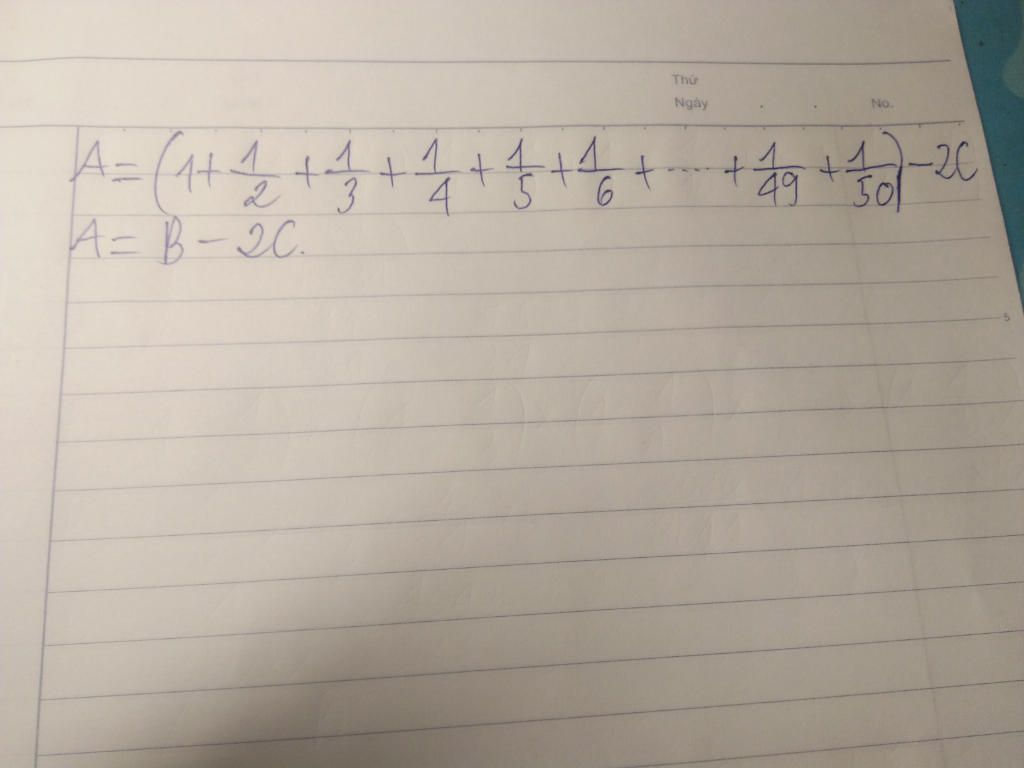 Thứ
Ngày . . No.
A = (1 + 1/2 + 1/3 + 1/4 + 1/5 + 1/6 + ... + 1/49 + 1/50) - 2C
A = B - 2C.
5